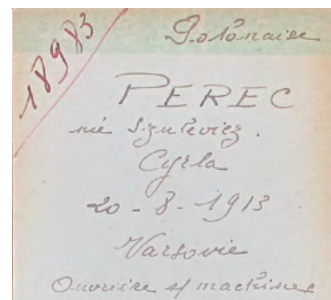 18983
Polonaise
PEREC
née Szulevicz.
Cyrla
20-8-1913
Varsovie
Ouvrière s/ machines